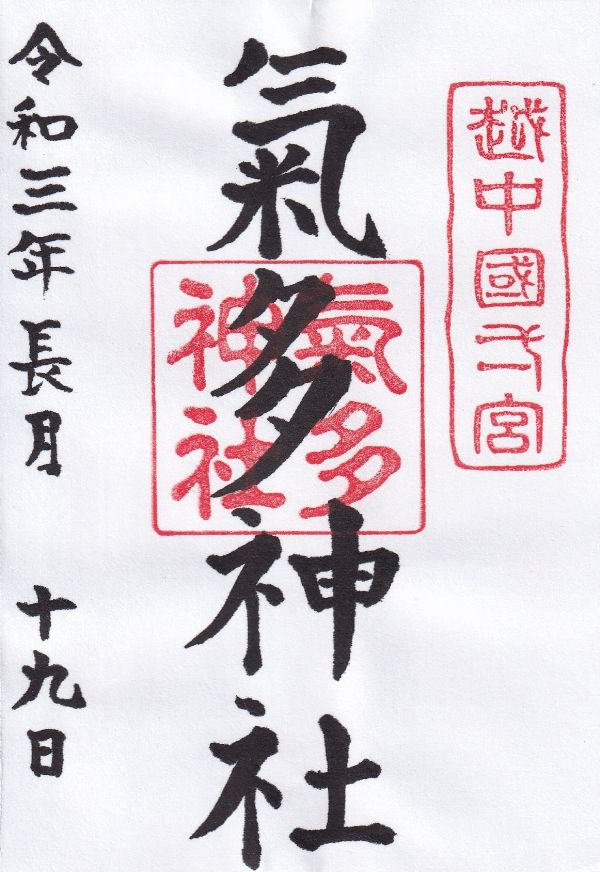 越中國一宮
氣多神社
氣多神社
令和三年長月 十九日